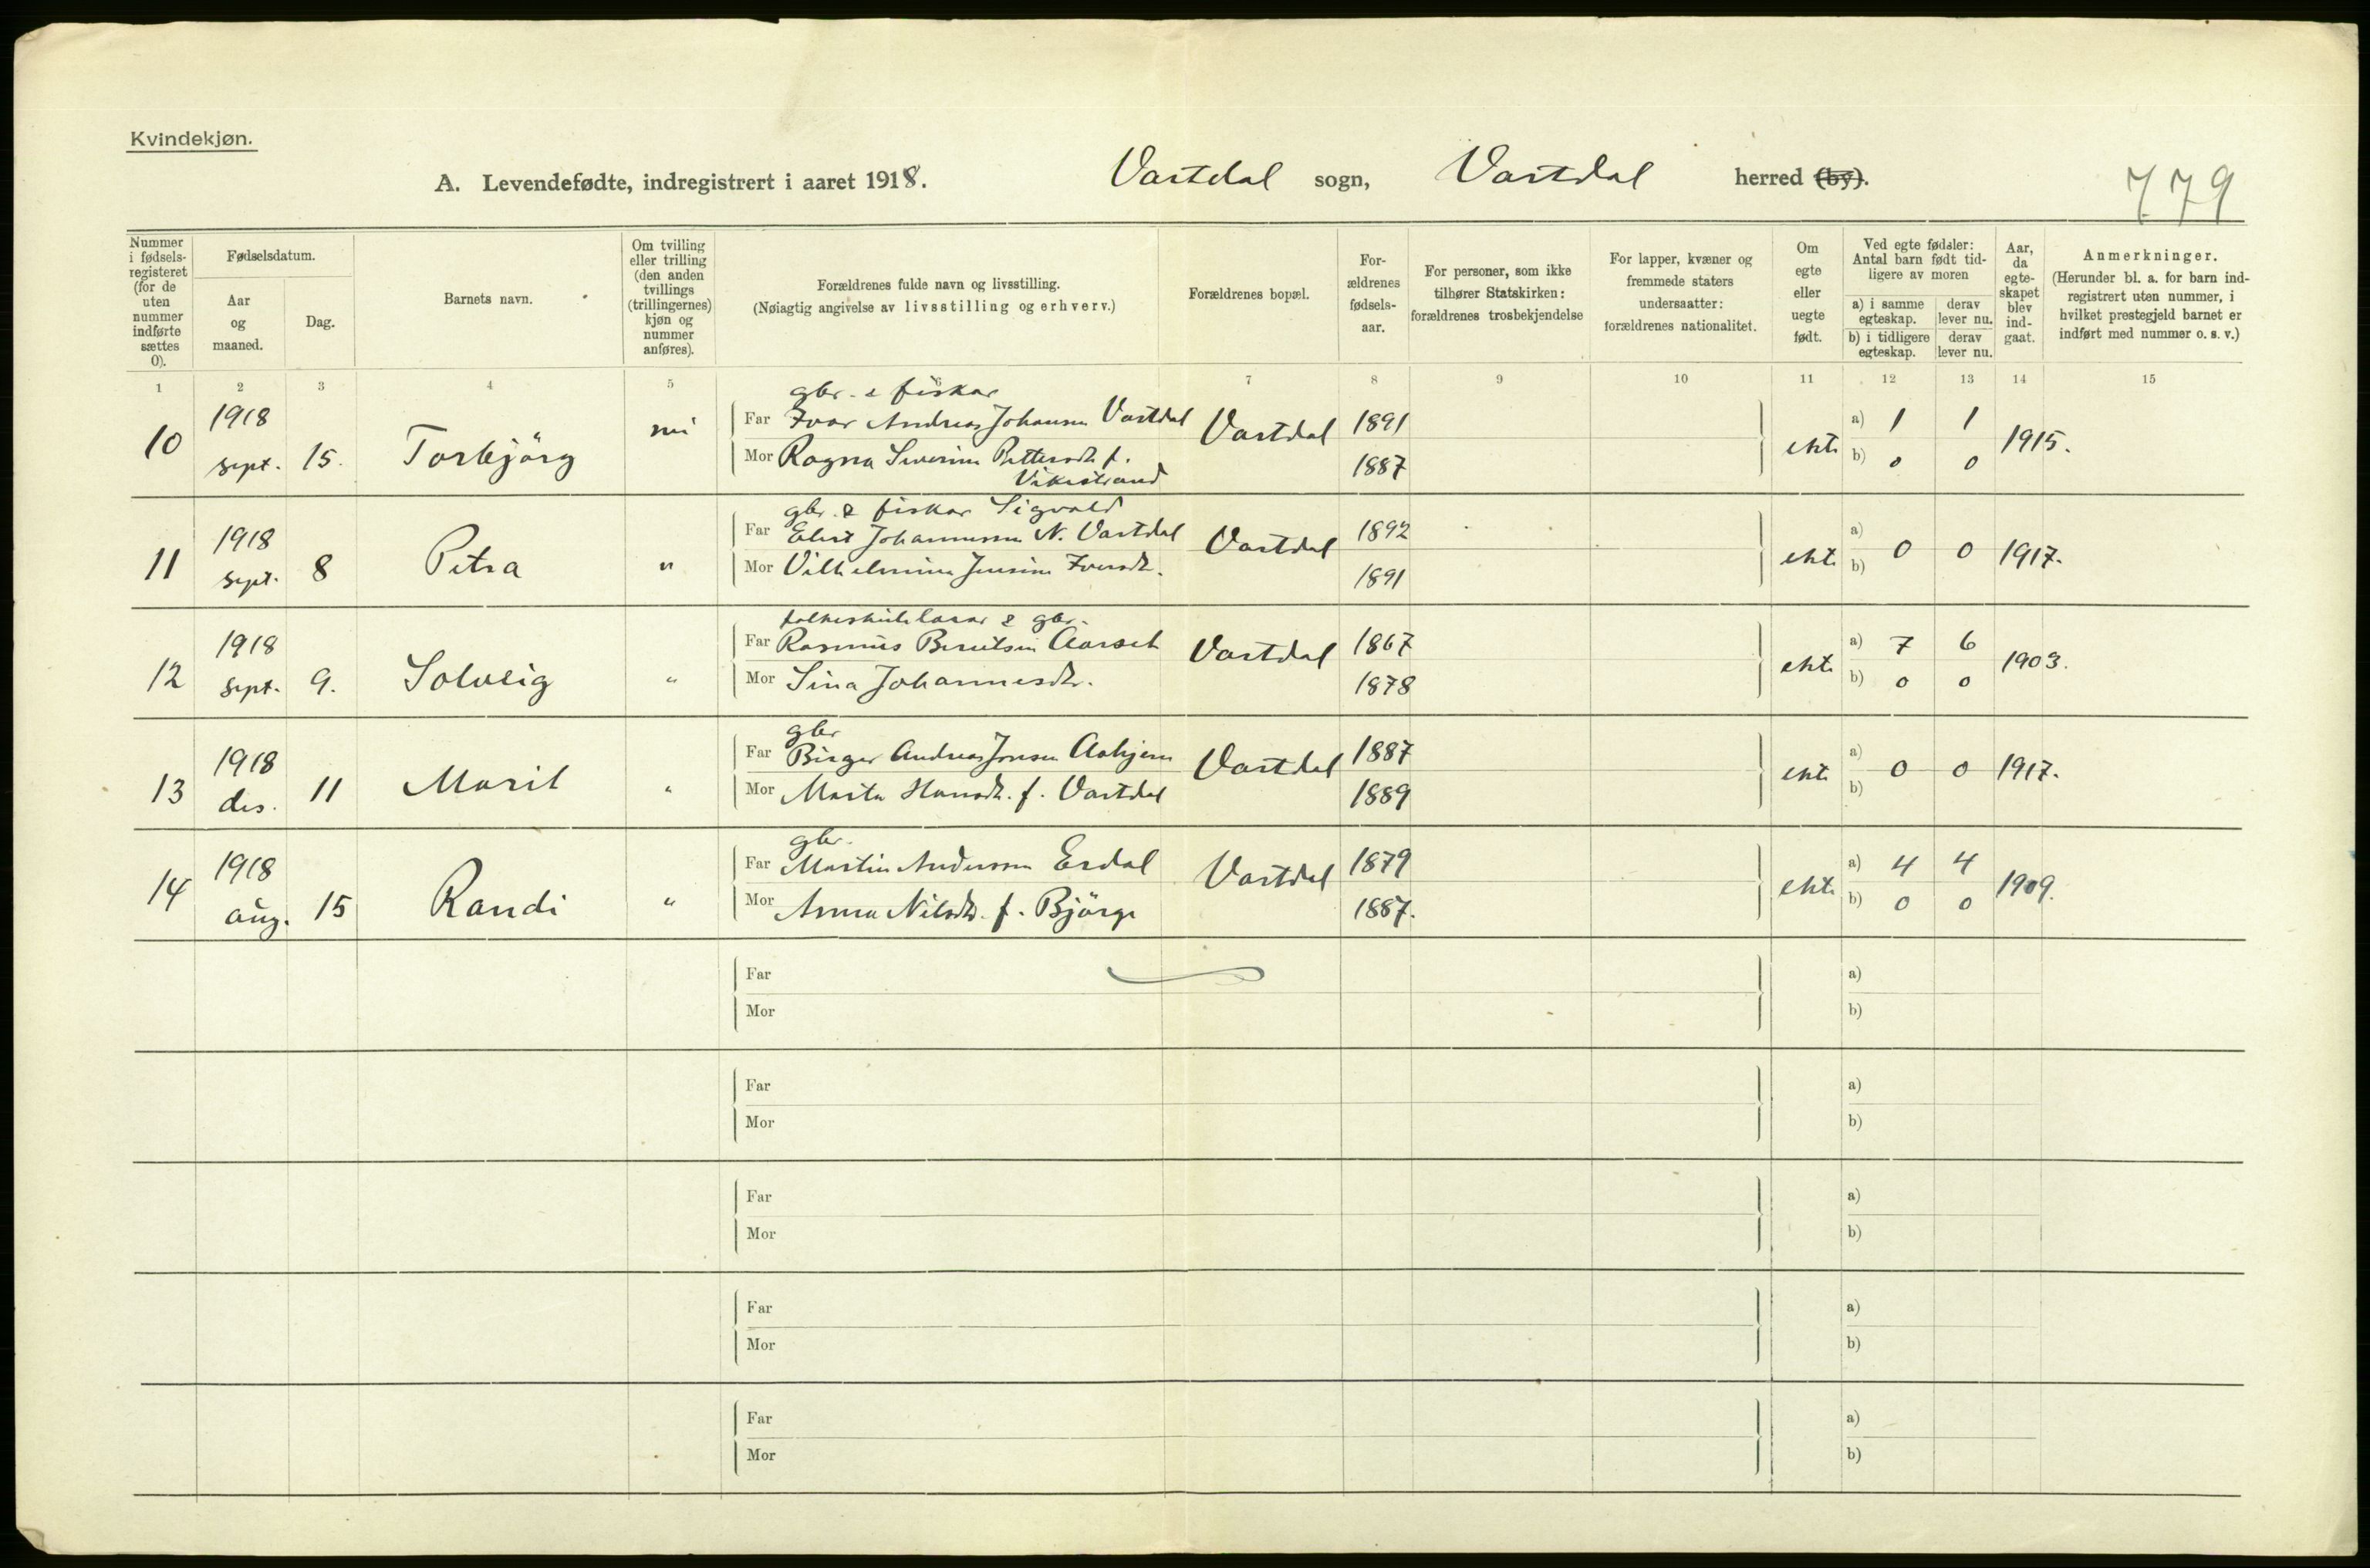 Kvindekjøn.
A. Levendefødte, indregistrert i aaret 1918. Vartdal sogn, Vartdal herred (by).
779
Nummer i fødsels-registeret (for de uten nummer indførte sættes 0).
Fødselsdatum.
Aar og maaned.
Dag.
Barnets navn.
Om tvilling eller trilling (den anden tvillings (trillingernes) kjøn og nummer anføres).
Forældrenes fulde navn og livsstilling.
(Nøiagtig angivelse av livsstilling og erhverv.)
Forældrenes bopæl.
For-ældrenes fødsels-aar.
For personer, som ikke tilhører Statskirken: forældrenes trosbekjendelse
For lapper, kvæner og fremmede staters undersaatter: forældrenes nationalitet.
Om egte eller uegte født.
Ved egte fødsler: Antal barn født tid-ligere av moren
a) i samme egteskap.
derav lever nu.
b) i tidligere egteskap.
derav lever nu.
Aar, da egte-skapet blev ind-gaat.
Anmerkninger.
(Herunder bl. a. for barn ind-registrert uten nummer, i hvilket prestegjeld barnet er indført med nummer o. s. v.)
1 2 3 4 5 6 7 8 9 10 11 12 13 14 15
gbr. & fiskar
10 1918 sept. 15. Torbjörg nei Far Ivar Andreas Johansen Vartdal Vartdal 1891 ekte a) 1 1 1915.
Mor Ragna Severine Pettersdt. f. 1887 b) 0 0
Vikestrand
gbr. & fiskar Sigvald
11 1918 sept. 8 Petra " Far Elert Johannessen N. Vartdal Vartdal 1892 ekte a) b) 0 0 1917.
Mor Vilhelmine Jensine Iversdt. 1891
folkeskulelærar & gbr.
12 1918 sept. 9. Solveig " Far Rasmus Berntsen Aarseth Vartdal 1867 ekte a) 7 6 1903.
Mor Sina Johannesdt. 1878 b) 0 0
gbr
13 1918 des. 11 Marit " Far Birger Andreas Jonsen Aahjem Vartdal 1887 ekte a) b) 0 0 1917.
Mor Marta Hansdt. f. Vartdal 1889
gbr.
14 1918 aug. 15 Randi " Far Martin Anderssen Erdal Vartdal 1879 ekte a) 4 4 1909.
Mor Anna Nilsdt. f. Björge 1887. b) 0 0
Far a)
Mor b)
Far a)
Mor b)
Far a)
Mor b)
Far a)
Mor b)
Far a)
Mor b)